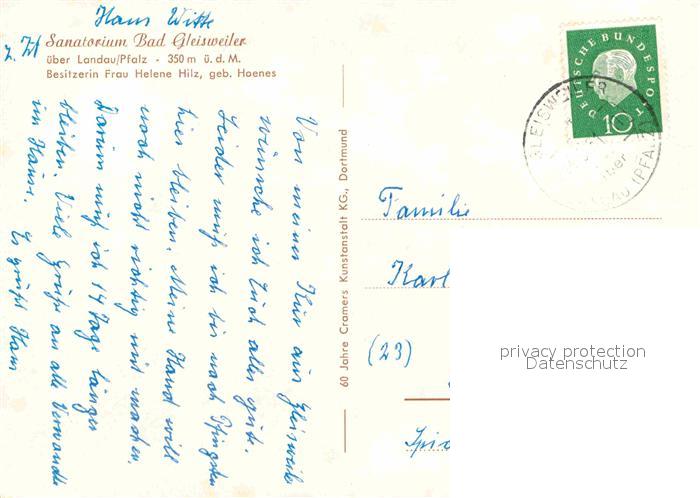 Hans Witte
z. Zt
Sanatorium Bad Gleisweiler
über Landau/Pfalz - 350 m ü. d. M.
Besitzerin Frau Helene Hilz, geb. Hoenes
Von meiner Kur aus Gleisweiler
wünsche ich Euch alles gute.
Leider muß ich bis nach Pfingsten
hier bleiben. Meine Hand will
noch nicht richtig mit machen.
Darum muß ich 14 Tage länger
bleiben. Viele Grüße an alle Verwandte
im Hause. Es grüßt Hans
60 Jahre Cramers Kunstanstalt KG., Dortmund
DEUTSCHE BUNDESPOST
10
GLEISWEILER
über
LANDAU (PFALZ)
Familie
Karl
(23)
privacy protection
Datenschutz